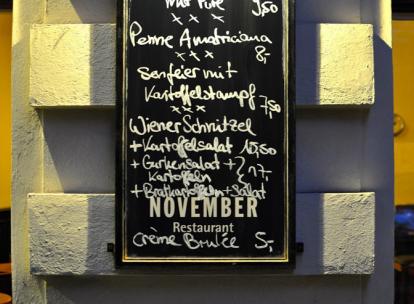 mit Pute 9,50
xxx
Penne Amatriciana
8,-
xxx
Senfeier mit
Kartoffelstampf 7,50
xxx
Wiener Schnitzel
+ Kartoffelsalat 15,50
+ Gurkensalat +
Kartoffeln } 17,-
+ Bratkartoffeln + Salat
NOVEMBER
Restaurant
Crème Brulée 5,-